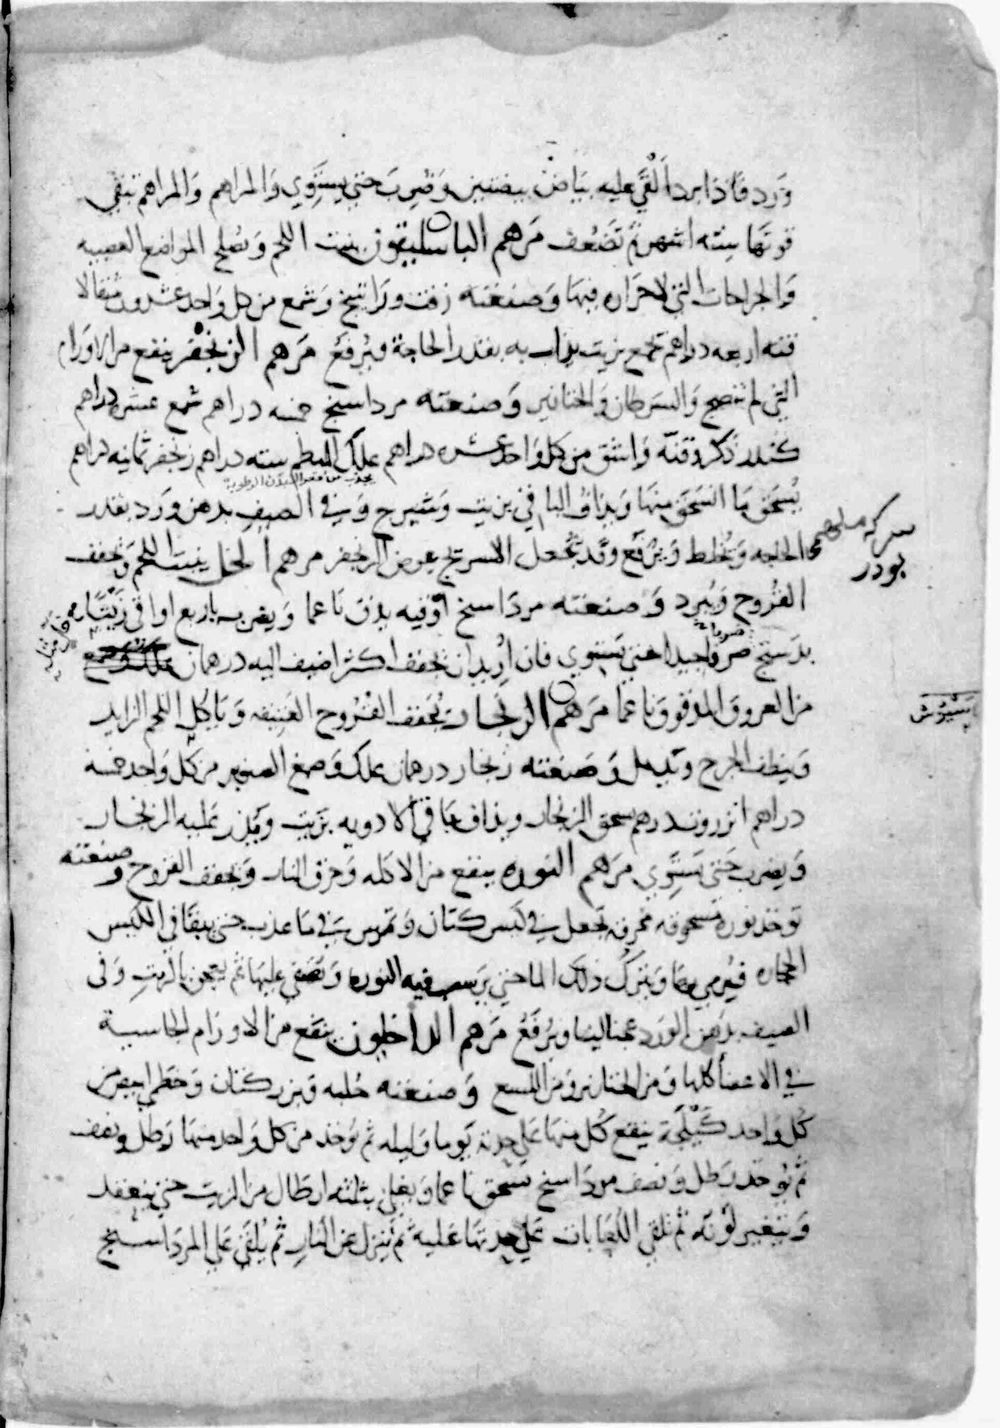 ورد فاذا برد القي عليه بياض بيضتين وضرب حتي يستوي والمراهم والمراهم تبقي
قوتها سته اشهر ثم تضعف مرهم الباسليقون ينبت اللحم ويصلح المواضع العصبيه
والجراحات التي لا حراره فيها وصنعته زفت وراتينج وشمع من كل واحد عشرون مثقالا
قنه اربعه دراهم تجمع بزيت يذاب به بقدر الحاجة ويرفع مرهم الزنجفر ينفع من الاورام
التي لم تنضج والسرطان والخنازير وصنعته مرداسنج خمسه دراهم شمع عشره دراهم
كندر ذكر وقنه واشق من كل واحد عشره دراهم علك البطم سته دراهم زنجفر ثمانيه دراهم
يجذب من قعر البدن الرطوبة
يسحق ما انسحق منها ويذاف الباقي بزيت وشيرج وفي الصيف بدهن ورد بقدر
الحاجه ويخلط ويرفع وقد تجعل الاسرنج عوض الزنجفر مرهم الخل ينبت اللحم ويجفف
سركه ملهمى
بودر
القروح ويبرد وصنعته مرداسنج اوقيه يدق ناعما ويضرب باربع اواقي زيتا
بدستج ضربا جيدا حتي يستوي فان اريد ان يجفف اكثر اضيف اليه درهمان
من العروق المدقوق ناعما مرهم الزنجار يجفف القروح العتيقه وياكل اللحم الزايد
وينظف الجرح ويدمل وصنعته زنجار درهمان علك وصمغ الصنوبر من كل واحد خمسة
دراهم انزروت درهم يسحق الزنجار ويذاف باقي الادويه بزيت ويذر عليه الزنجار
ويضرب حتي يستوي مرهم النوره ينفع من الاكله وحرق النار ويجفف القروح وصنعته
توخذ نوره مسحوقه محرقه تجعل في كيس كتان وتمرس في ما عذب حتي يبقا في الكيس
الحجاره فيرمي بها ويترك ذلك الما حتي يرسب فيه النوره ويصفي عليها ثم يعجن بالزيت وفي
الصيف بدهن الورد عجنا لينا ويرفع مرهم الداخليون ينفع من الاورام الجاسية
في الاعضا كلها ومن الخنازير ومن السع وصنعته حلبه وبزر كتان وخطمي ابيض من
كل واحد كيلجة ينقع كل منها علي حدته يوما وليله ثم يوخذ من كل واحد منها رطل ونصف
ثم يوخذ رطل ونصف مرداسنج يسحق ناعما ويغلي بثلثه ارطال من الزيت حتي ينعقد
ويتغير لونه ثم تلقي اللعابات علي حدتها عليه ثم ينزل عن النار ثم يلقي علي المرداسنج